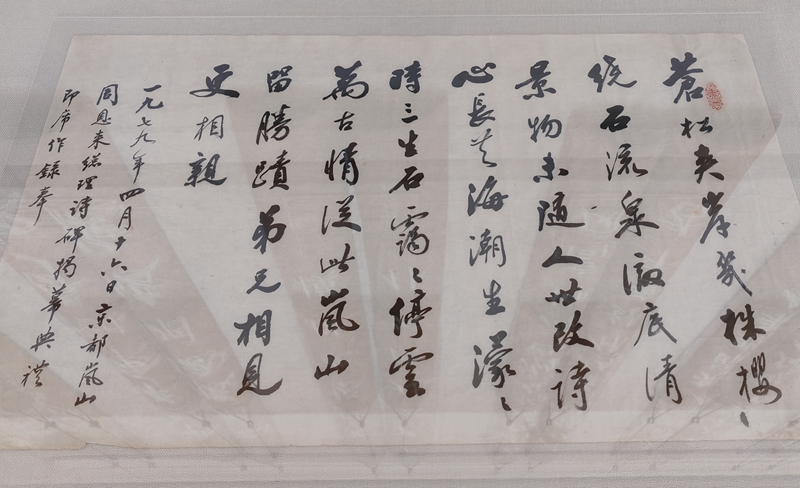 蒼松夾岸幾株櫻
繞石流泉澈底清
景物未隨人世改詩
心長共海潮生濛々
時三生石靄々停雲
萬古情從此嵐山
留勝蹟弟兄相見
更相親
一九七九年四月十六日京都嵐山
周恩来總理詩碑揭幕典禮
即席作錄奉